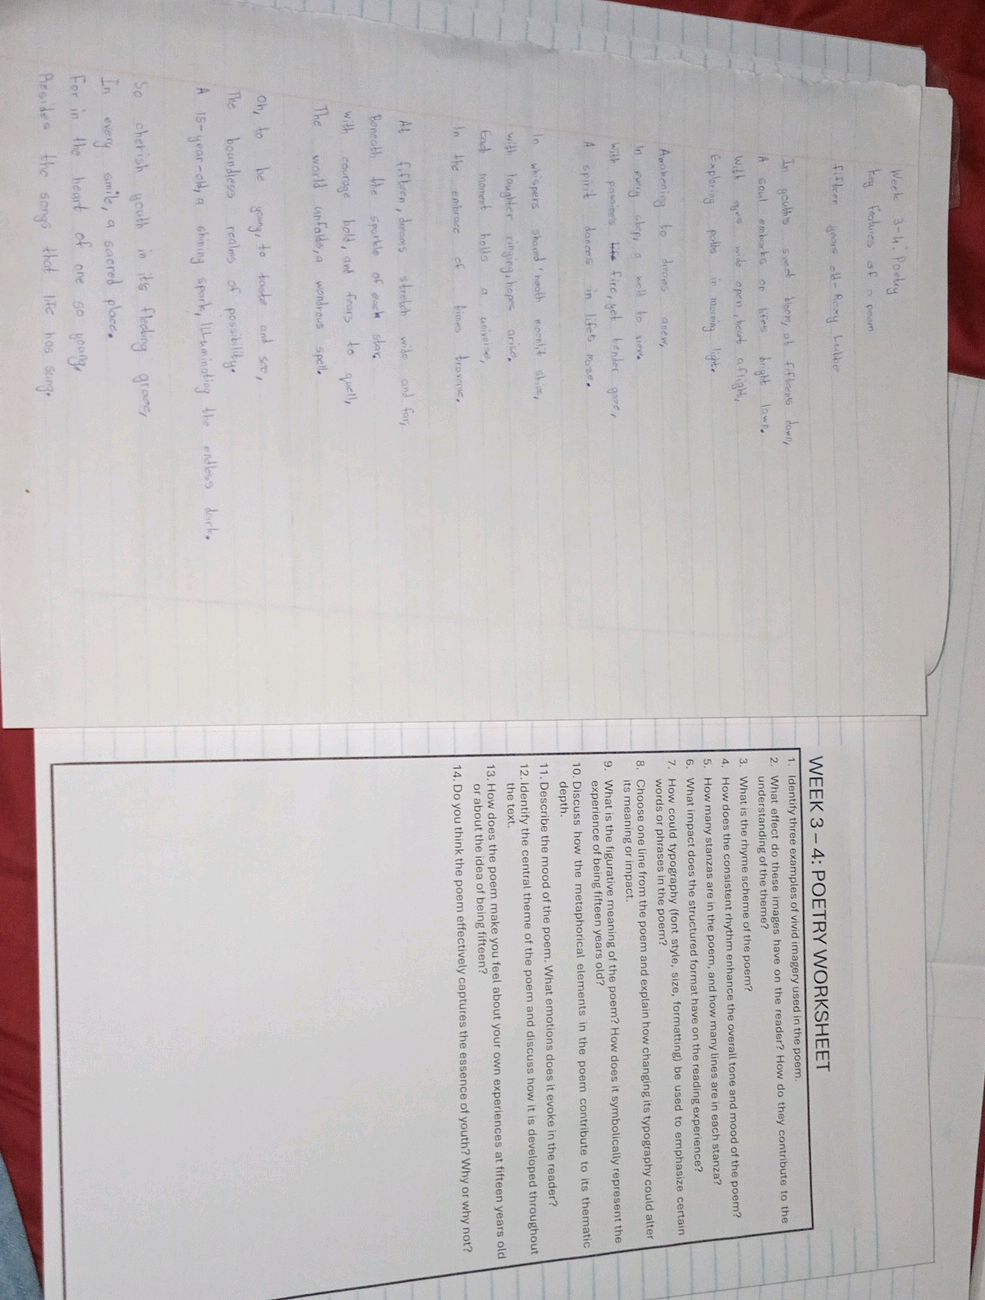 Week 3-4: Poetry
Key features of a poem
fifteen years old - Roxy Lubbe
In youth's sweet bloom, at fifteens dawn,
A soul embarks on lifes bright lawn.
With eyes wide open, heart aflight,
Exploring paths in morning light.
Awakening to dreams anew,
In every step, a world to view.
With passions fire, yet tender gaze,
A spirit dances in life's maze.
In whispers shared 'neath moonlit skies,
with laughter ringing, hopes arise.
Each moment holds a universe,
In the embrace of times traverse.
At fifteen, dreams stretch wide and far,
Beneath the sparkle of each star.
with courage bold, and fears to quell,
The world unfolds, a wondrous spell.
Oh, to be young, to taste and see,
The boundless realms of possibility.
A 15-year-old, a shining spark, Illuminating the endless dark.
So cherish youth in its fleeting grace,
In every smile, a sacred place.
For in the heart of one so young,
Resides the songs that life has sung.
WEEK 3 – 4: POETRY WORKSHEET
1. Identify three examples of vivid imagery used in the poem.
2. What effect do these images have on the reader? How do they contribute to the
understanding of the theme?
3. What is the rhyme scheme of the poem?
4. How does the consistent rhythm enhance the overall tone and mood of the poem?
5. How many stanzas are in the poem, and how many lines are in each stanza?
6. What impact does the structured format have on the reading experience?
7. How could typography (font style, size, formatting) be used to emphasize certain
words or phrases in the poem?
8. Choose one line from the poem and explain how changing its typography could alter
its meaning or impact.
9. What is the figurative meaning of the poem? How does it symbolically represent the
experience of being fifteen years old?
10. Discuss how the metaphorical elements in the poem contribute to its thematic
depth.
11. Describe the mood of the poem. What emotions does it evoke in the reader?
12. Identify the central theme of the poem and discuss how it is developed throughout
the text.
13. How does the poem make you feel about your own experiences at fifteen years old
or about the idea of being fifteen?
14. Do you think the poem effectively captures the essence of youth? Why or why not?